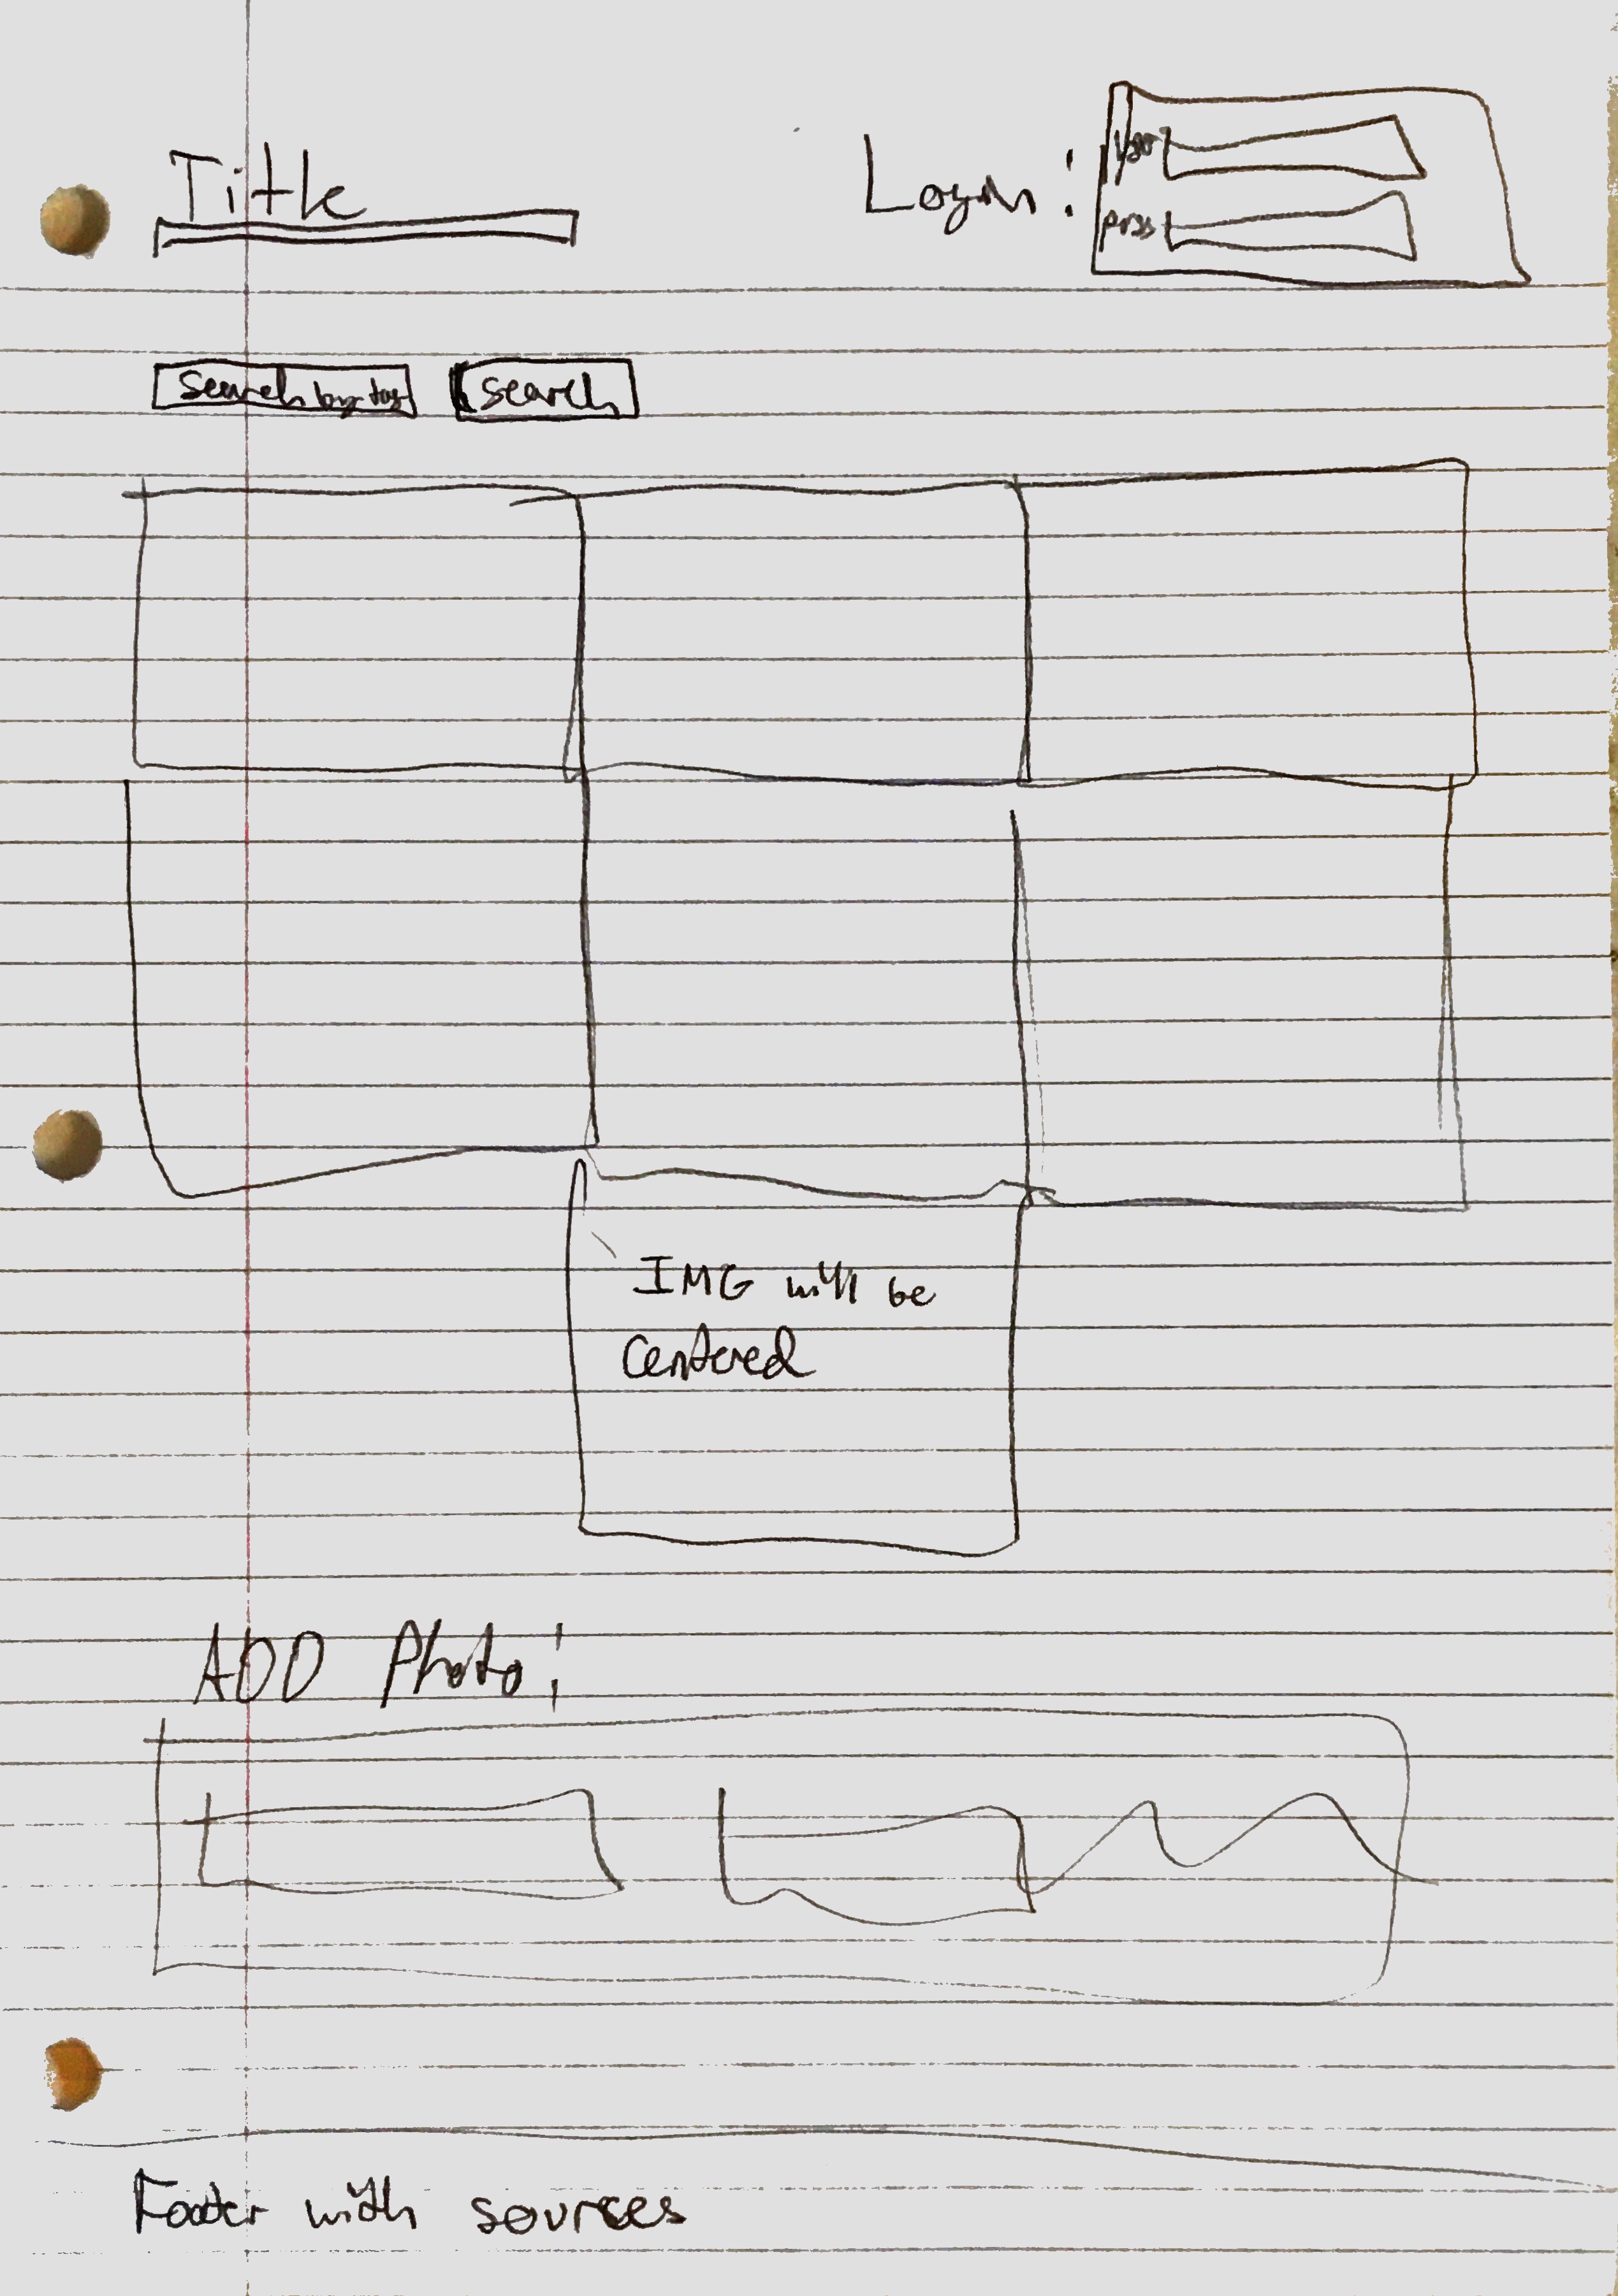 Title
Login:
User
pass
search by tag
search
IMG will be
Centered
ADD Photo!
Footer with sources